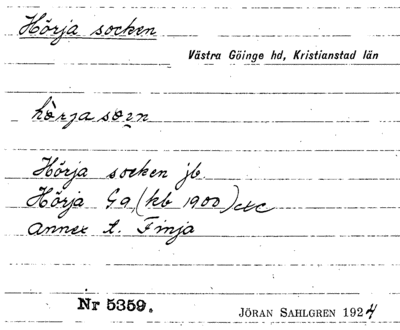 Hörja socken
Västra Göinge hd, Kristianstad län
hörja
Hörja socken jb.
Hörja Ga (kb 1900) etc
annex t. Finja
Nr 5359.
JÖRAN SAHLGREN 1924